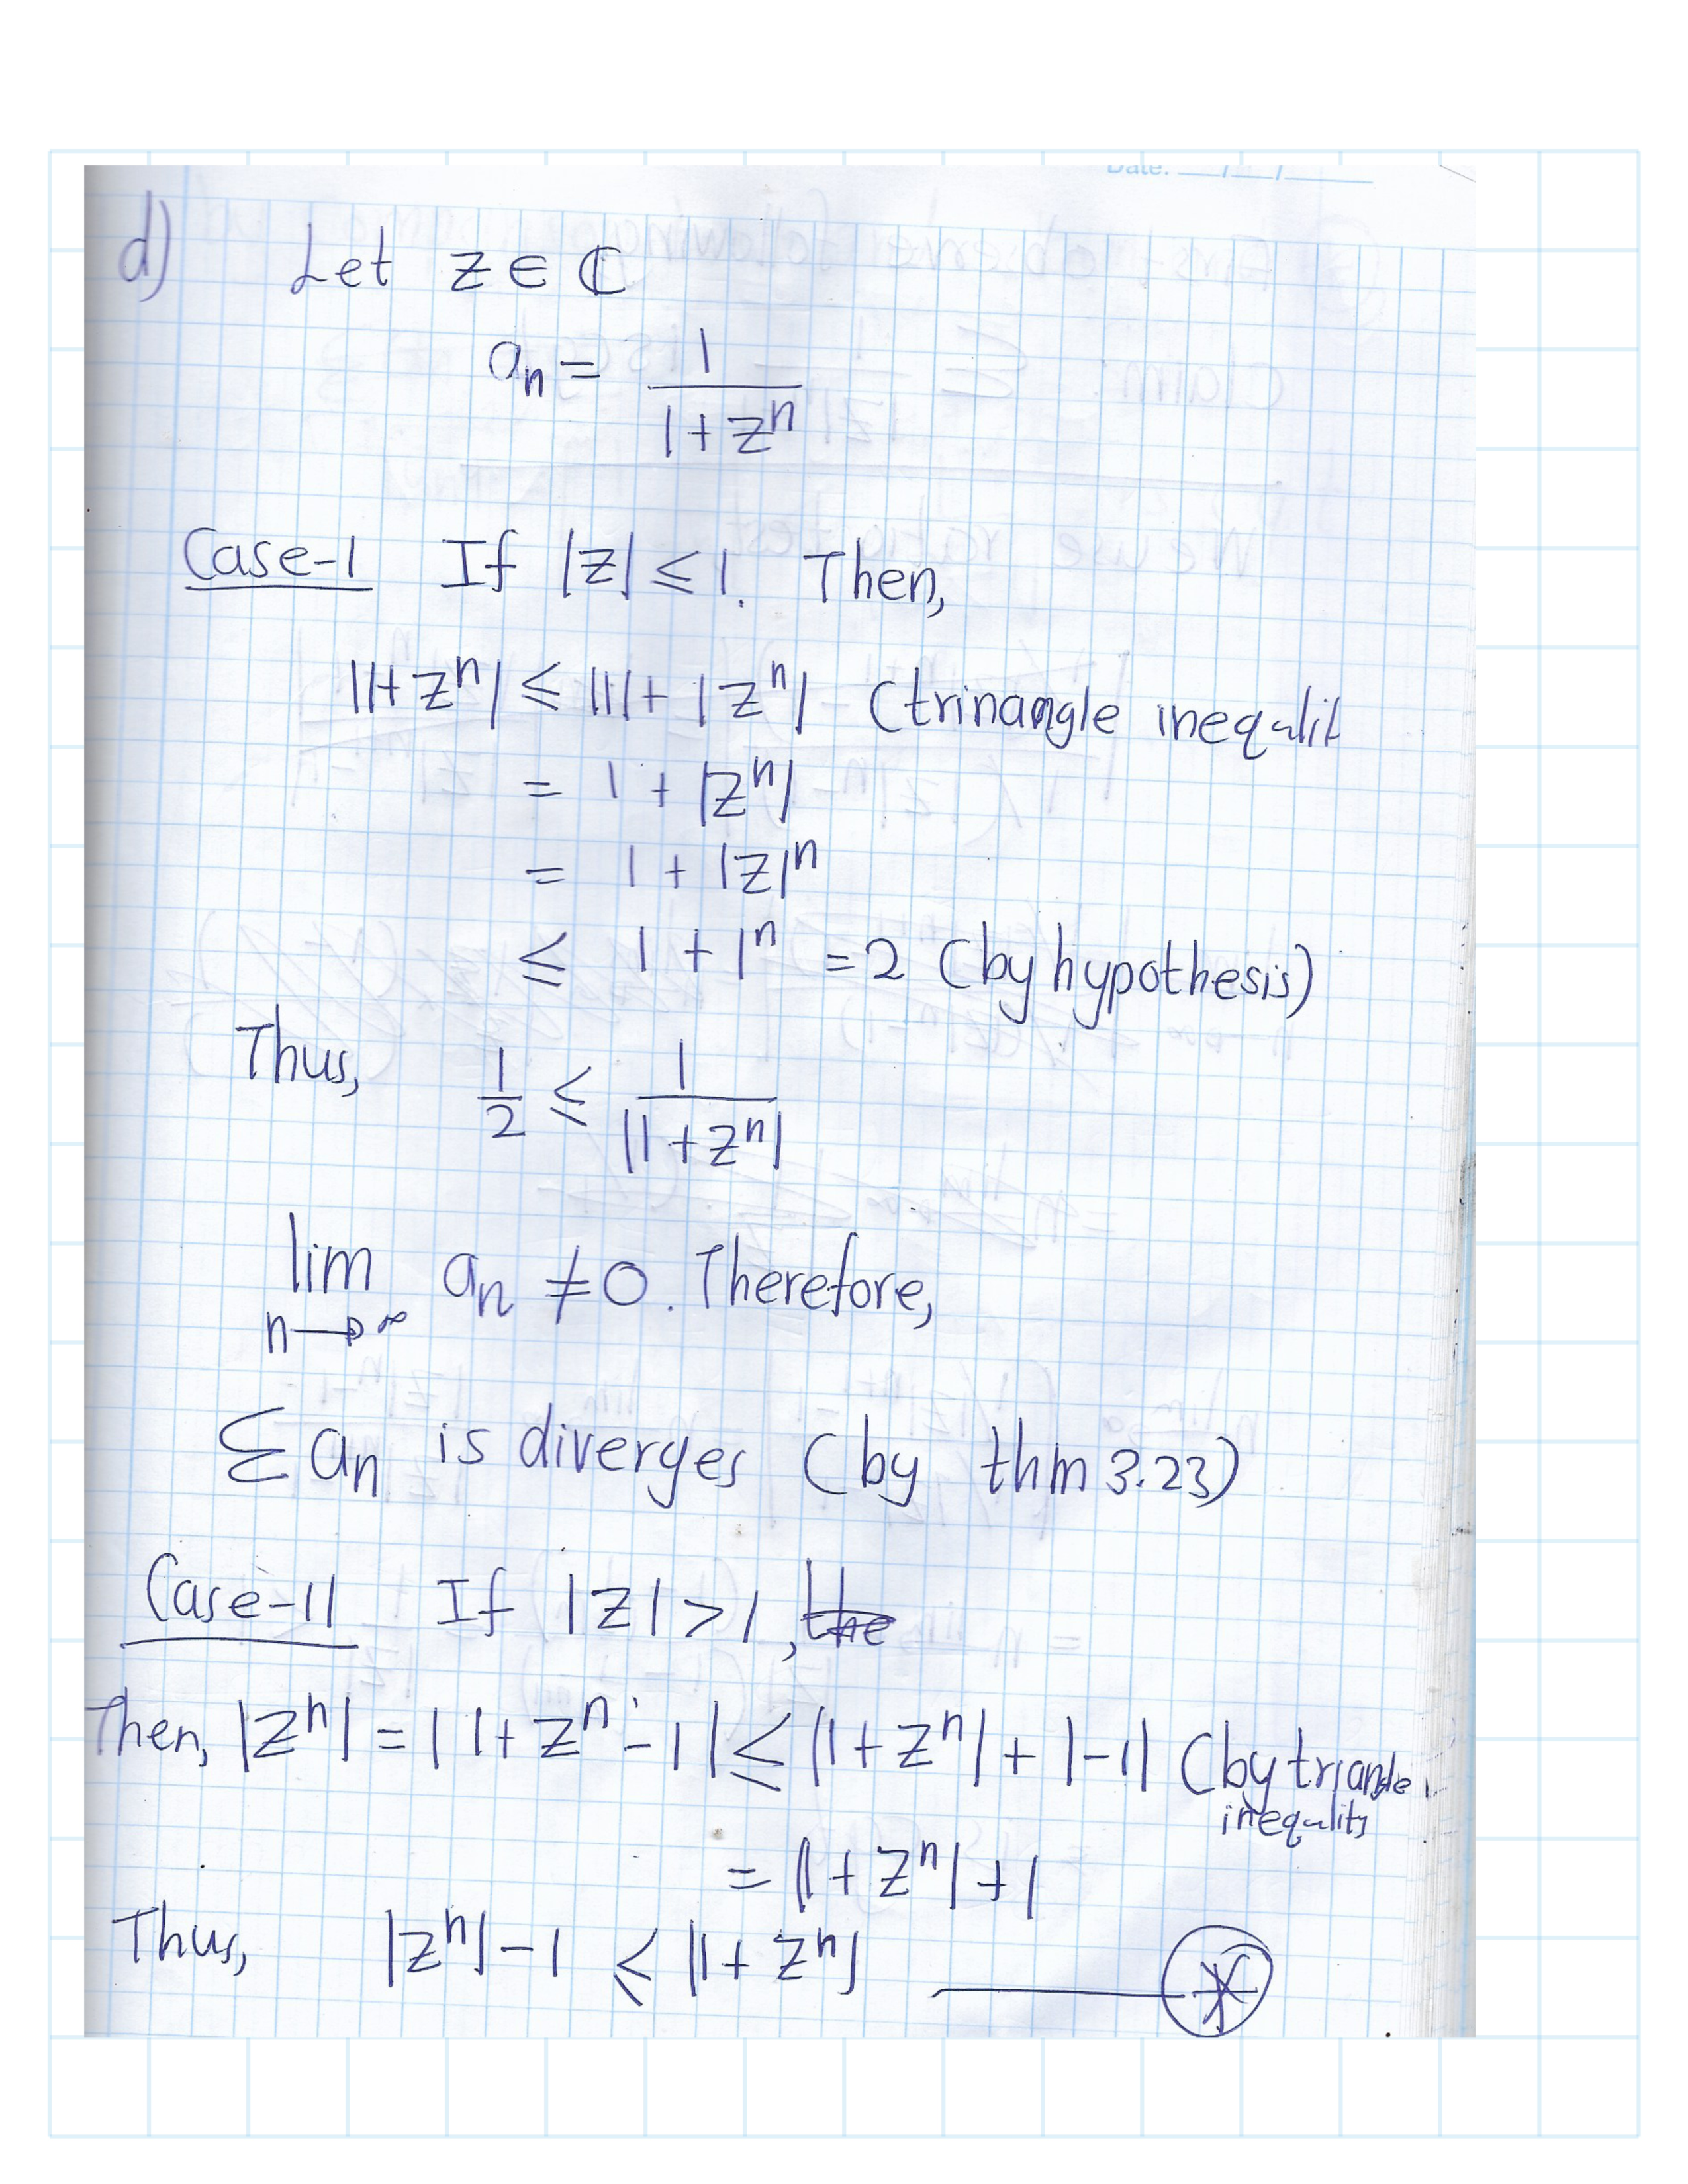 Date: __/__/____
d) Let z ∈ ℂ
aₙ = 1/(1+zⁿ)
Case-1 If |z| ≤ 1. Then,
|1+zⁿ| ≤ |1| + |zⁿ| (trinangle inequalit
= 1 + |zⁿ|
= 1 + |z|ⁿ
≤ 1 + 1ⁿ = 2 (by hypothesis)
Thus, 1/2 ≤ 1/|1+zⁿ|
lim n→∞ aₙ ≠ 0. Therefore,
Σ aₙ is diverges (by thm 3.23)
Case-11 If |z| > 1, the
Then, |zⁿ| = |1+zⁿ-1| ≤ |1+zⁿ| + |-1| (by triangle
inequlity
= |1+zⁿ| + 1
Thus, |zⁿ| - 1 ≤ |1+zⁿ| ——— ⊛